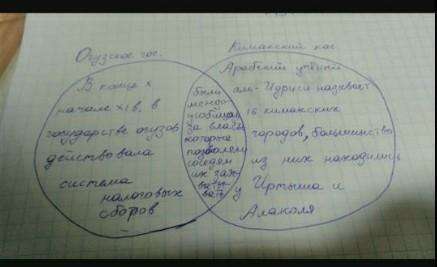 Огузское гос.
В конце X
начале XI в, в
государстве огузов
действовала
система
налоговых
сборов
были
междо-
усобицы
за власть
которые
позволяли
соседям
их зах-
ваты-
вать
Кимакский каг.
Арабский учёный
аль-Идриси называет
16 кимакских
городов, большинство
из них находились
у Иртыша и
Алаколя